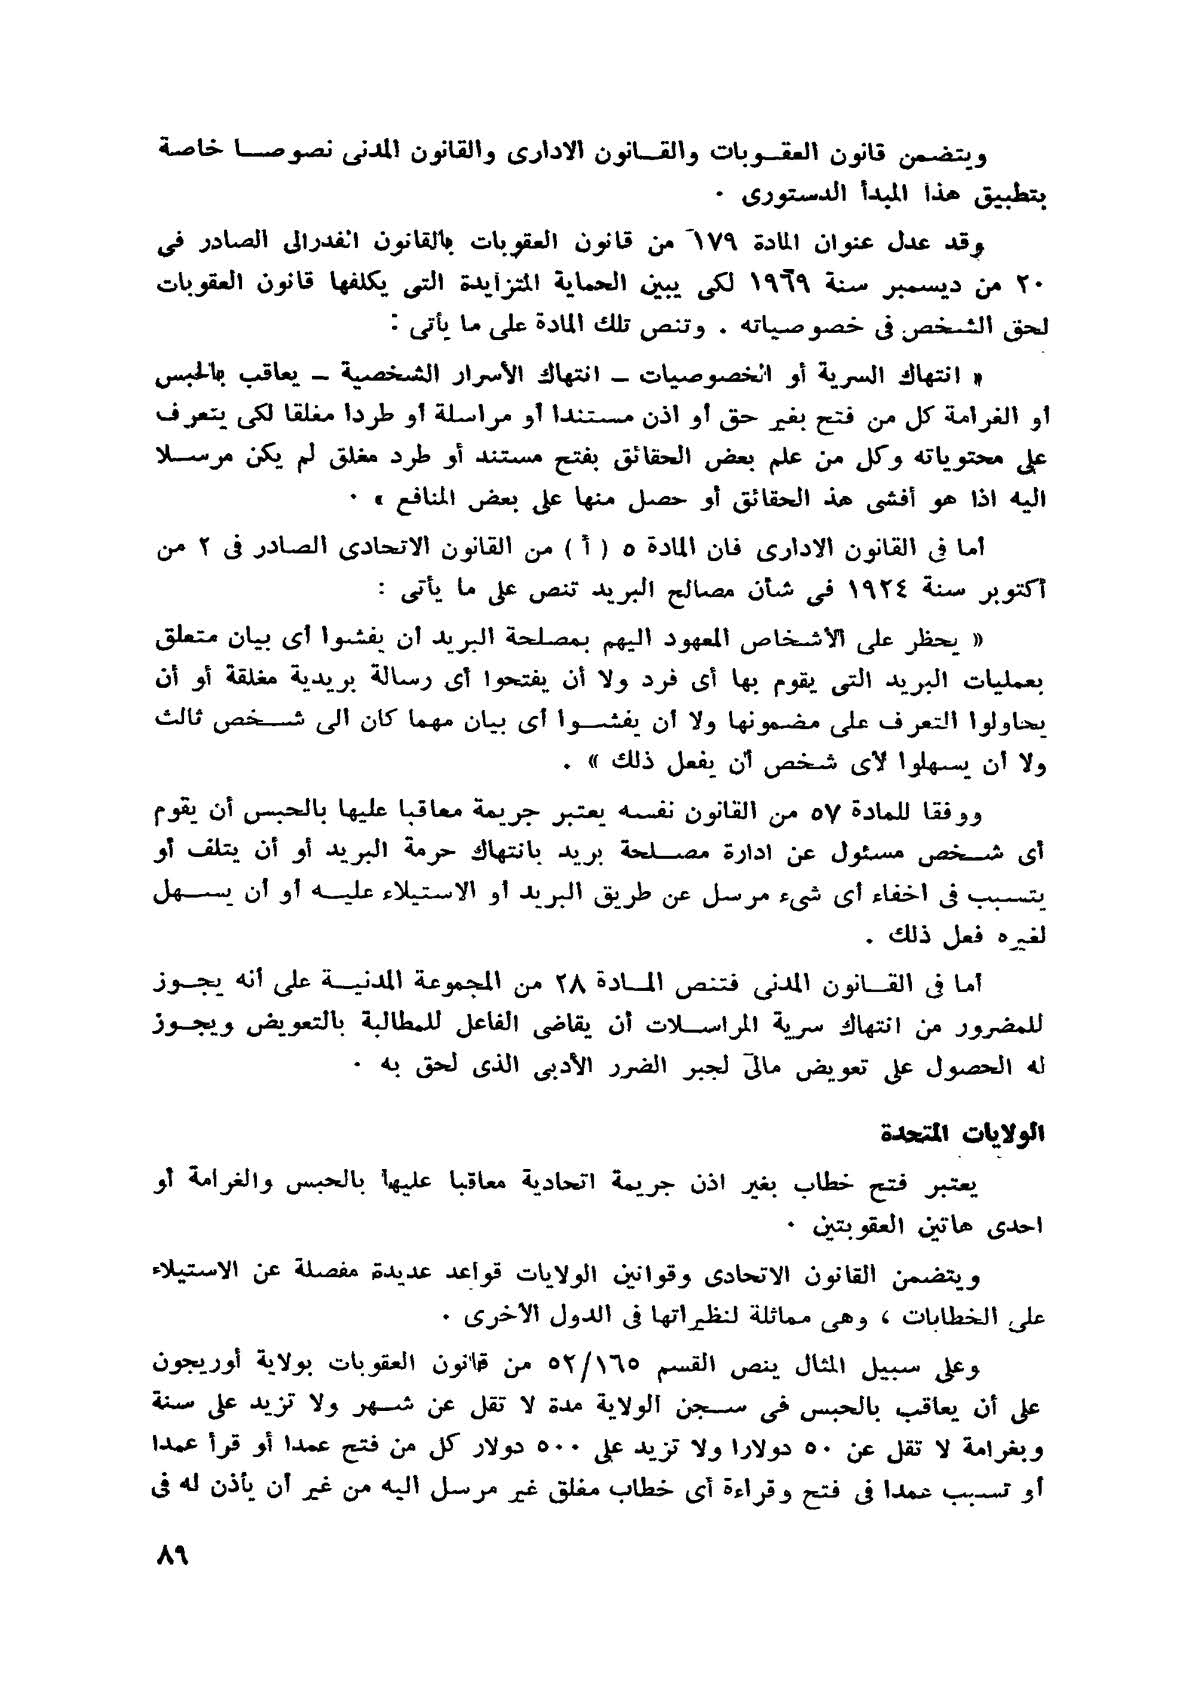 ويتضمن قانون العقوبات والقانون الادارى والقانون المدنى نصوصا خاصة
بتطبيق هذا المبدأ الدستورى .
وقد عدل عنوان المادة ١٧٩ من قانون العقوبات بالقانون الفدرالى الصادر فى
٢٠ من ديسمبر سنة ١٩٦٩ لكى يبين الحماية المتزايدة التى يكلفها قانون العقوبات
لحق الشخص فى خصوصياته . وتنص تلك المادة على ما يأتى :
« انتهاك السرية أو الخصوصيات – انتهاك الأسرار الشخصية – يعاقب بالحبس
أو الغرامة كل من فتح بغير حق أو اذن مستندا أو مراسلة أو طردا مغلقا لكى يتعرف
على محتوياته وكل من علم بعض الحقائق بفتح مستند أو طرد مغلق لم يكن مرسلا
اليه اذا هو أفشى هذ الحقائق أو حصل منها على بعض المنافع » .
أما فى القانون الادارى فان المادة ٥ ( أ ) من القانون الاتحادى الصادر فى ٢ من
أكتوبر سنة ١٩٢٤ فى شأن مصالح البريد تنص على ما يأتى :
« يحظر على الأشخاص المعهود اليهم بمصلحة البريد أن يفشوا أى بيان متعلق
بعمليات البريد التى يقوم بها أى فرد ولا أن يفتحوا أى رسالة بريدية مغلقة أو أن
يحاولوا التعرف على مضمونها ولا أن يفشوا أى بيان مهما كان الى شخص ثالث
ولا أن يسهلوا لأى شخص أن يفعل ذلك » .
ووفقا للمادة ٥٧ من القانون نفسه يعتبر جريمة معاقبا عليها بالحبس أن يقوم
أى شخص مسئول عن ادارة مصلحة بريد بانتهاك حرمة البريد أو أن يتلف أو
يتسبب فى اخفاء أى شىء مرسل عن طريق البريد أو الاستيلاء عليه أو أن يسهل
لغيره فعل ذلك .
أما فى القانون المدنى فتنص المادة ٢٨ من المجموعة المدنية على أنه يجوز
للمضرور من انتهاك سرية المراسلات أن يقاضى الفاعل للمطالبة بالتعويض ويجوز
له الحصول على تعويض مالى لجبر الضرر الأدبى الذى لحق به .
الولايات المتحدة
يعتبر فتح خطاب بغير اذن جريمة اتحادية معاقبا عليها بالحبس والغرامة أو
احدى هاتين العقوبتين .
ويتضمن القانون الاتحادى وقوانين الولايات قواعد عديدة مفصلة عن الاستيلاء
على الخطابات ، وهى مماثلة لنظيراتها فى الدول الأخرى .
وعلى سبيل المثال ينص القسم ٥٢/١٦٥ من قانون العقوبات بولاية أوريجون
على أن يعاقب بالحبس فى سجن الولاية مدة لا تقل عن شهر ولا تزيد على سنة
وبغرامة لا تقل عن ٥٠ دولارا ولا تزيد على ٥٠٠ دولار كل من فتح عمدا أو قرأ عمدا
أو تسبب عمدا فى فتح وقراءة أى خطاب مغلق غير مرسل اليه من غير أن يأذن له فى
٨٩